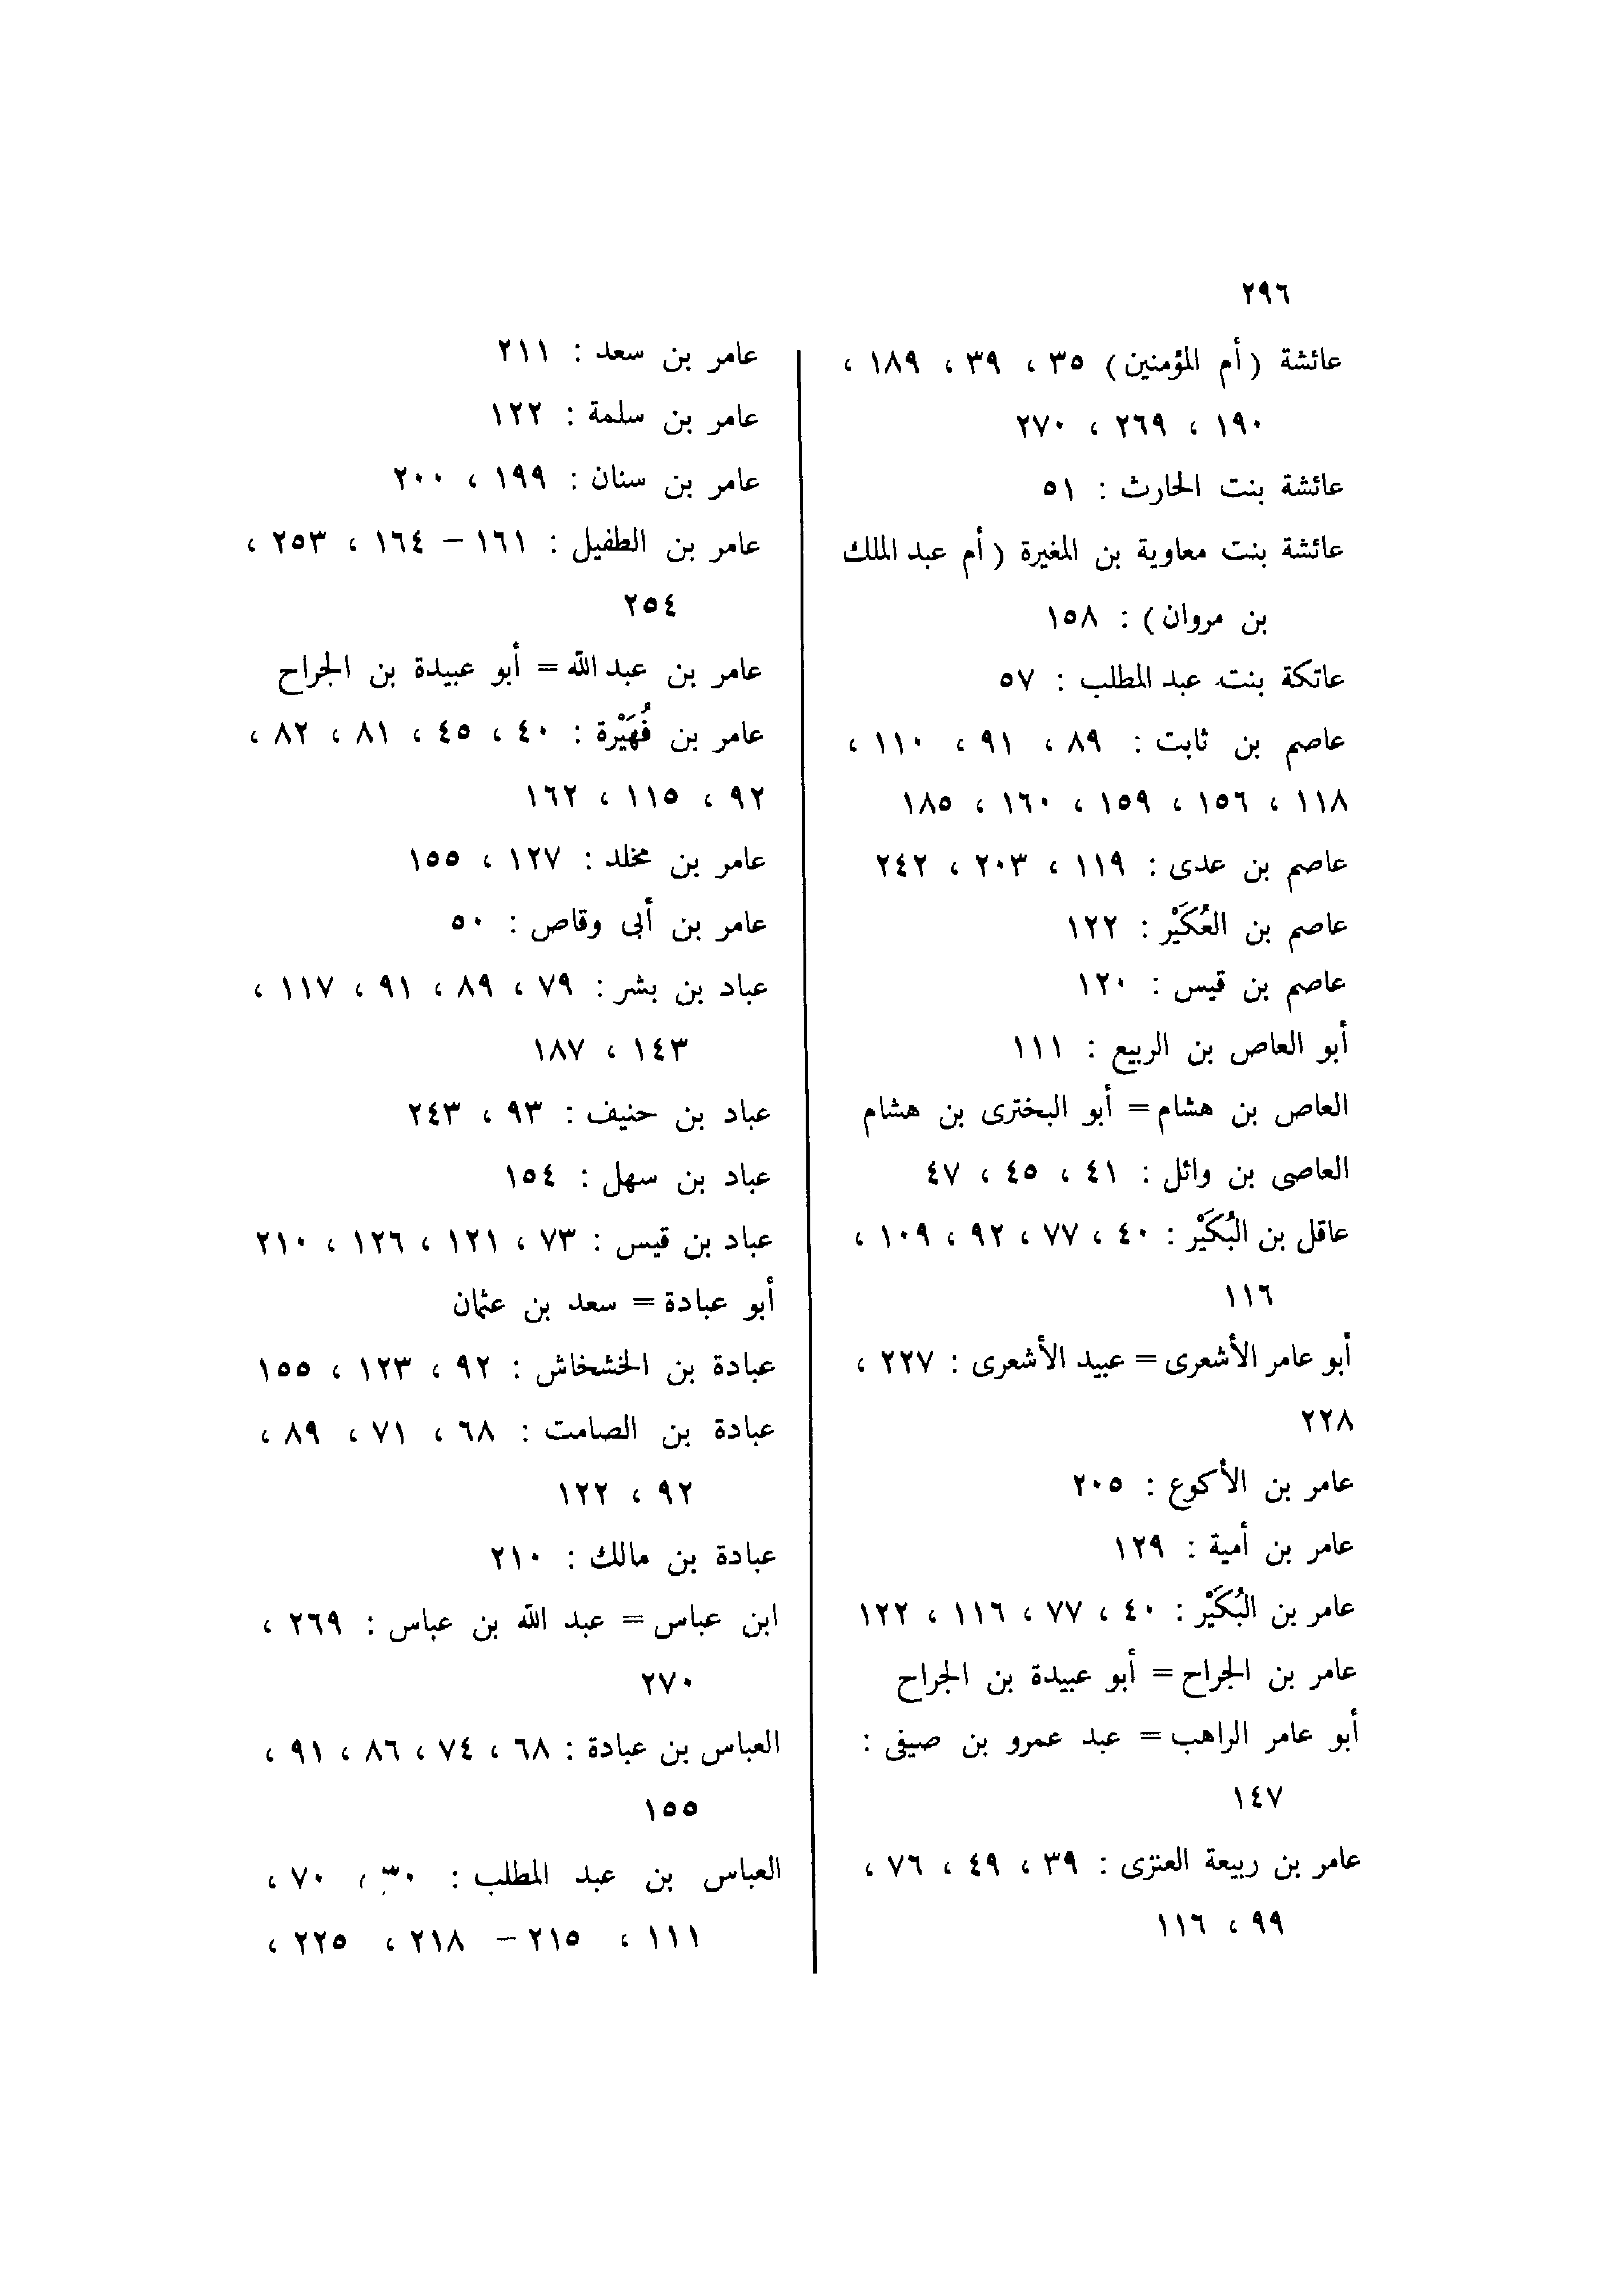 ٢٩٦
عائشة (أم المؤمنين) ٣٥ ، ٣٩ ، ١٨٩ ،
١٩٠ ، ٢٦٩ ، ٢٧٠
عائشة بنت الحارث : ٥١
عائشة بنت معاوية بن المغيرة (أم عبد الملك
بن مروان) : ١٥٨
عاتكة بنت عبد المطلب : ٥٧
عاصم بن ثابت : ٨٩ ، ٩١ ، ١١٠ ،
١١٨ ، ١٥٦ ، ١٥٩ ، ١٦٠ ، ١٨٥
عاصم بن عدى : ١١٩ ، ٢٠٣ ، ٢٤٢
عاصم بن العُكَيْر : ١٢٢
عاصم بن قيس : ١٢٠
أبو العاص بن الربيع : ١١١
العاص بن هشام = أبو البخترى بن هشام
العاصى بن وائل : ٤١ ، ٤٥ ، ٤٧
عاقل بن البُكَيْر : ٤٠ ، ٧٧ ، ٩٢ ، ١٠٩ ،
١١٦
أبو عامر الأشعرى = عبيد الأشعرى : ٢٢٧ ،
٢٢٨
عامر بن الأكوع : ٢٠٥
عامر بن أمية : ١٢٩
عامر بن البُكَيْر : ٤٠ ، ٧٧ ، ١١٦ ، ١٢٢
عامر بن الجراح = أبو عبيدة بن الجراح
أبو عامر الراهب = عبد عمرو بن صيفى :
١٤٧
عامر بن ربيعة العنزى : ٣٩ ، ٤٩ ، ٧٦ ،
٩٩ ، ١١٦
عامر بن سعد : ٢١١
عامر بن سلمة : ١٢٢
عامر بن سنان : ١٩٩ ، ٢٠٠
عامر بن الطفيل : ١٦١ – ١٦٤ ، ٢٥٣ ،
٢٥٤
عامر بن عبد الله = أبو عبيدة بن الجراح
عامر بن فُهَيْرة : ٤٠ ، ٤٥ ، ٨١ ، ٨٢ ،
٩٢ ، ١١٥ ، ١٦٢
عامر بن مخلد : ١٢٧ ، ١٥٥
عامر بن أبى وقاص : ٥٠
عباد بن بشر : ٧٩ ، ٨٩ ، ٩١ ، ١١٧ ،
١٤٣ ، ١٨٧
عباد بن حنيف : ٩٣ ، ٢٤٣
عباد بن سهل : ١٥٤
عباد بن قيس : ٧٣ ، ١٢١ ، ١٢٦ ، ٢١٠
أبو عبادة = سعد بن عثمان
عبادة بن الخشخاش : ٩٢ ، ١٢٣ ، ١٥٥
عبادة بن الصامت : ٦٨ ، ٧١ ، ٨٩ ،
٩٢ ، ١٢٢
عبادة بن مالك : ٢١٠
ابن عباس = عبد الله بن عباس : ٢٦٩ ،
٢٧٠
العباس بن عبادة : ٦٨ ، ٧٤ ، ٨٦ ، ٩١ ،
١٥٥
العباس بن عبد المطلب : ٧٠ ،
١١١ ، ٢١٥ – ٢١٨ ، ٢٢٥ ،